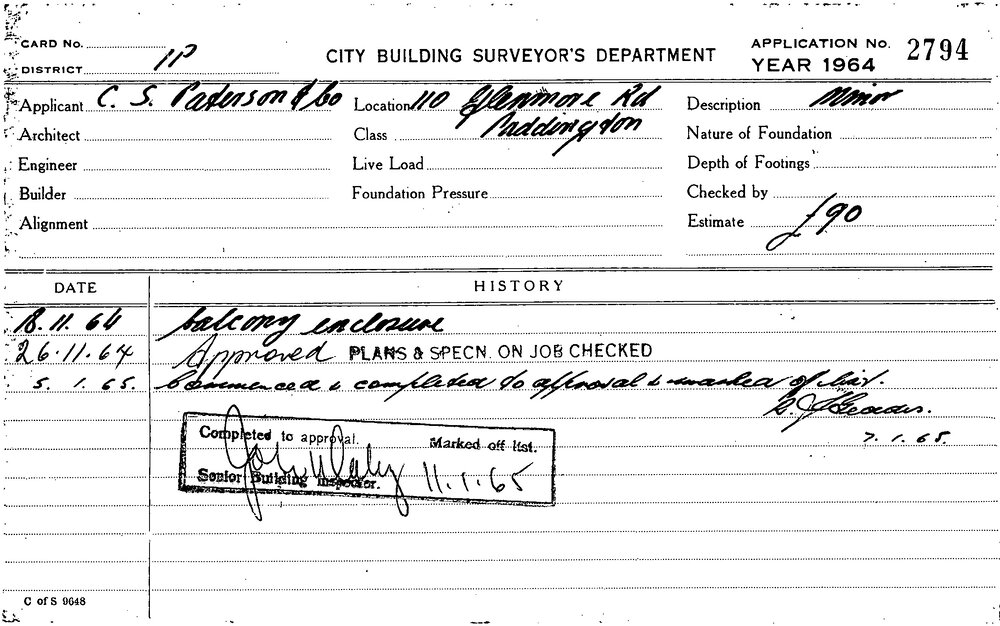 CARD No. CITY BUILDING SURVEYOR'S DEPARTMENT APPLICATION No. 2794
DISTRICT 11P YEAR 1964
Applicant C. S. Paterson & Co Location 110 Glenmore Rd Description Minor
Architect Class Paddington Nature of Foundation
Engineer Live Load Depth of Footings
Builder Foundation Pressure Checked by
Alignment Estimate £90
DATE HISTORY
18.11.64 balcony enclosure
26.11.64 Approved PLANS & SPECN. ON JOB CHECKED
5.1.65. Commenced & completed to approval & marked off list.
7.1.65.
Completed to approval. Marked off list.
11.1.65
Senior Building Inspector.
C of S 9648